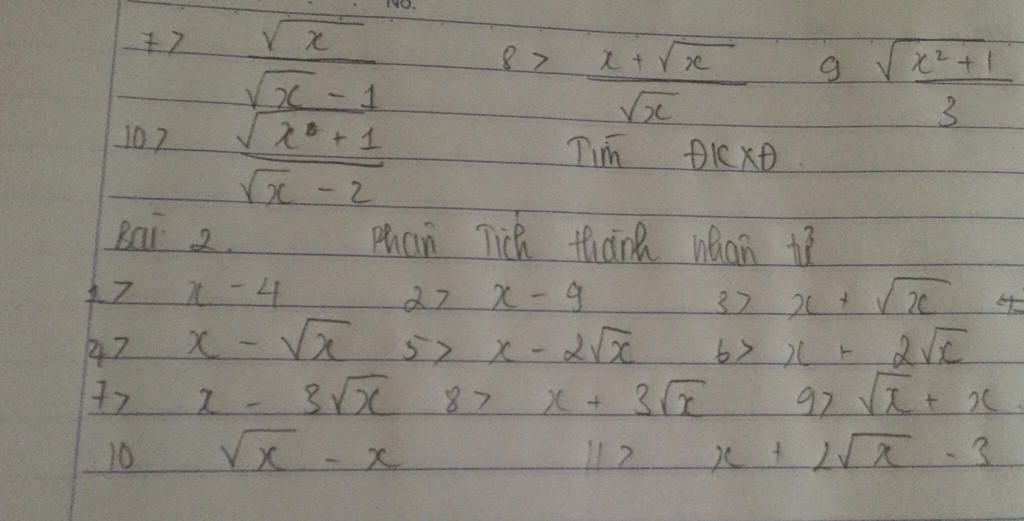 No.
7> √x / (√x - 1) 8> (x + √x) / √x 9 √(x² + 1) / 3
10> √(x + 1) / (√x - 2) Tìm ĐKXĐ
Bài 2. Phân Tích thành nhân tử
1> x - 4 2> x - 9 3> x + √x
4> x - √x 5> x - 2√x 6> x + 2√x
7> x - 3√x 8> x + 3√x 9> √x + x
10 √x - x 11> x + 2√x - 3